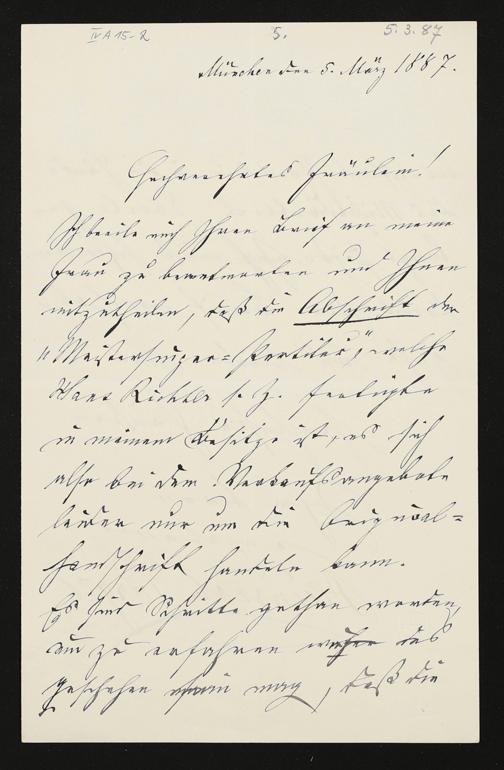 IV A 15-2 5. 5.3.87
München den 5. März 1887.
Hochverehrtes Fräulein!
Ich beeile mich Ihren Brief an meine
Frau zu beantworten und Ihnen
mitzutheilen, daß die Abschrift der
„Meistersinger=Partitur", welche
Hans Richter s. Z. fertigte
in meinem Besitze ist, es sich
also bei dem Verkaufsangebote
leider nur um die Original=
handschrift handeln kann.
Es sind Schritte gethan worden,
um zu erfahren das
geschehen mag, daß die